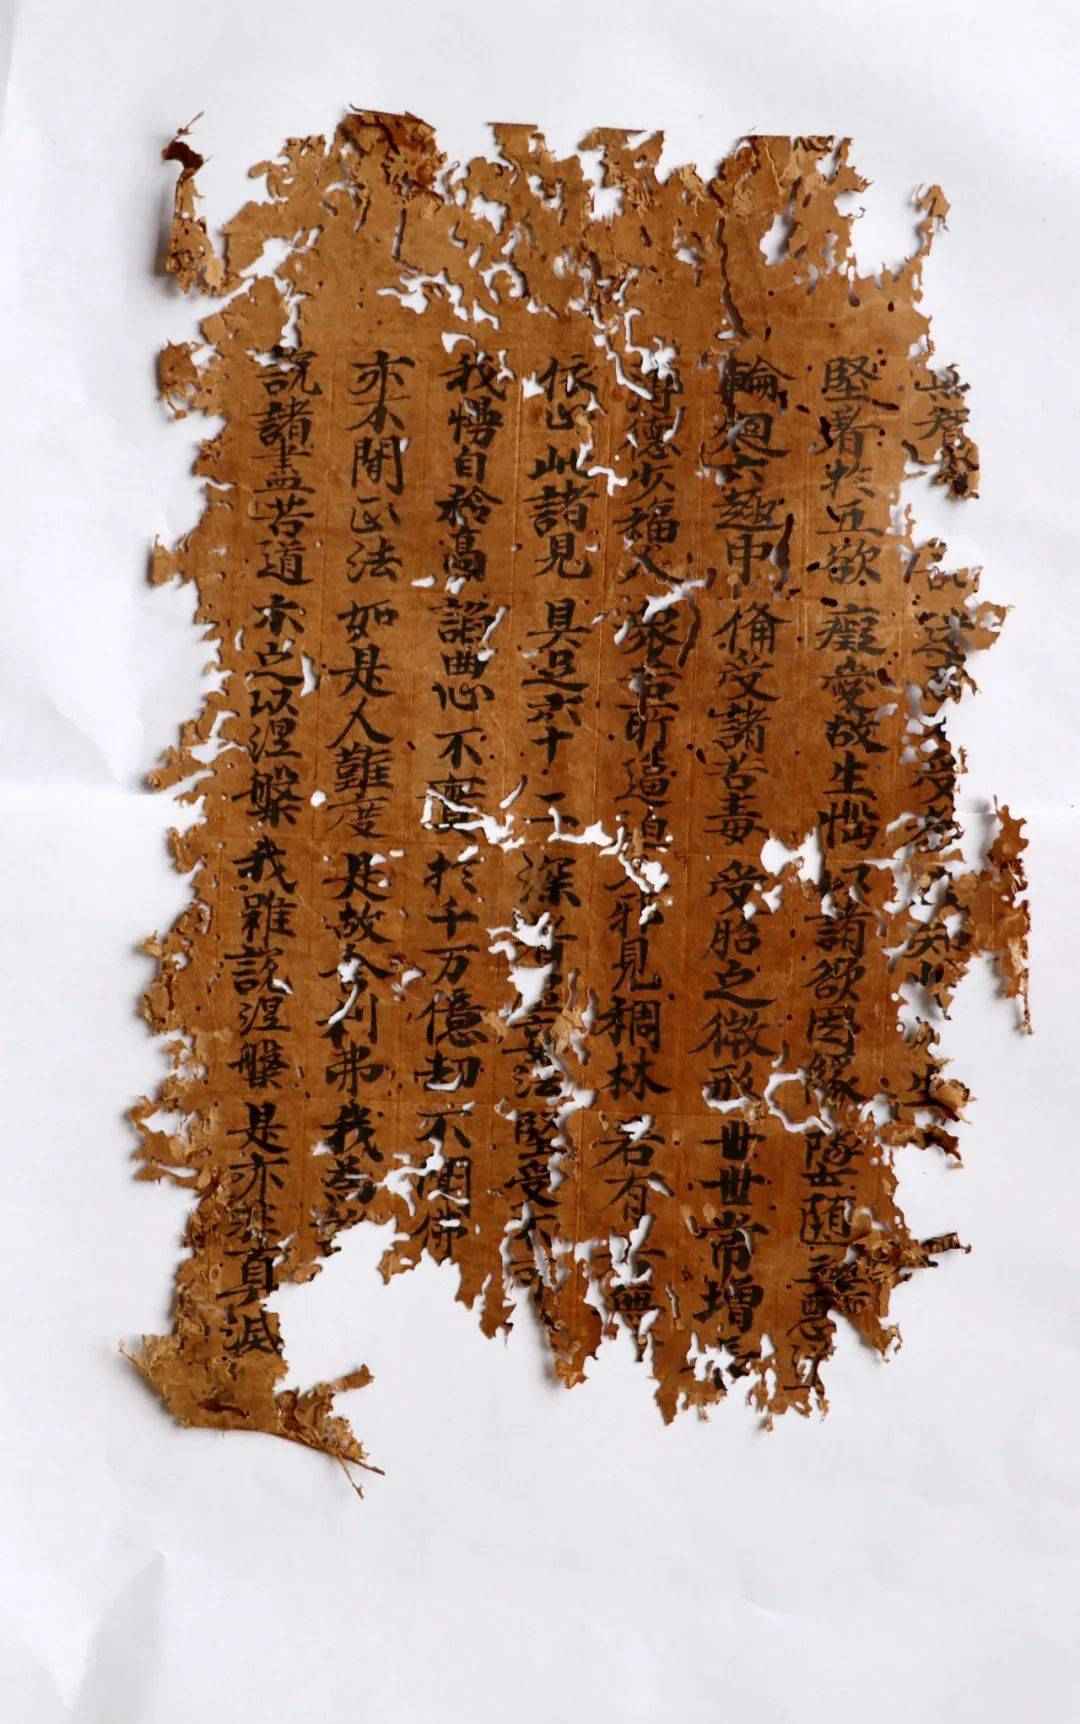 無智 迷 受教 知此 生
堅著於五欲 癡愛故生惱 以諸欲因緣 墜墮三惡
輪迴六趣中 俻受諸苦毒 受胎之微形 世世常增長
薄德少福人 衆苦所逼迫 入邪見稠林 若有 無
依止此諸見 具足六十二 深著 妄法 堅受不可
我慢自矜高 諂曲心不實 於千万億劫 不聞佛
亦不聞正法 如是人難度 是故舍利弗 我為設
說諸盡苦道 示之以涅槃 我雖說涅槃 是亦非真滅